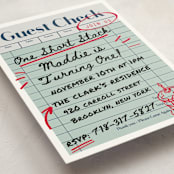 Guest Check
One Short Stack
Maddie is
Turning One!
NOVEMBER 10TH AT 1PM
THE CLARK'S RESIDENCE
920 CARROLL STREET
BROOKLYN, NEW YORK
RSVP: 718-317-5827